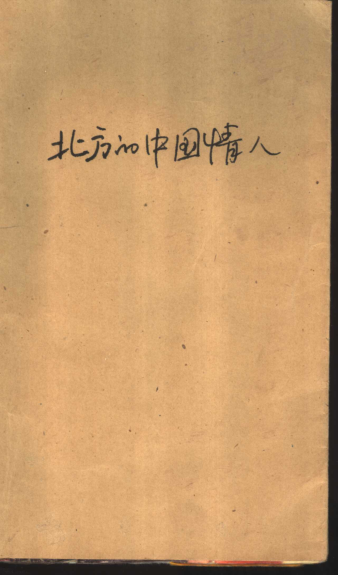 北方的中国情人